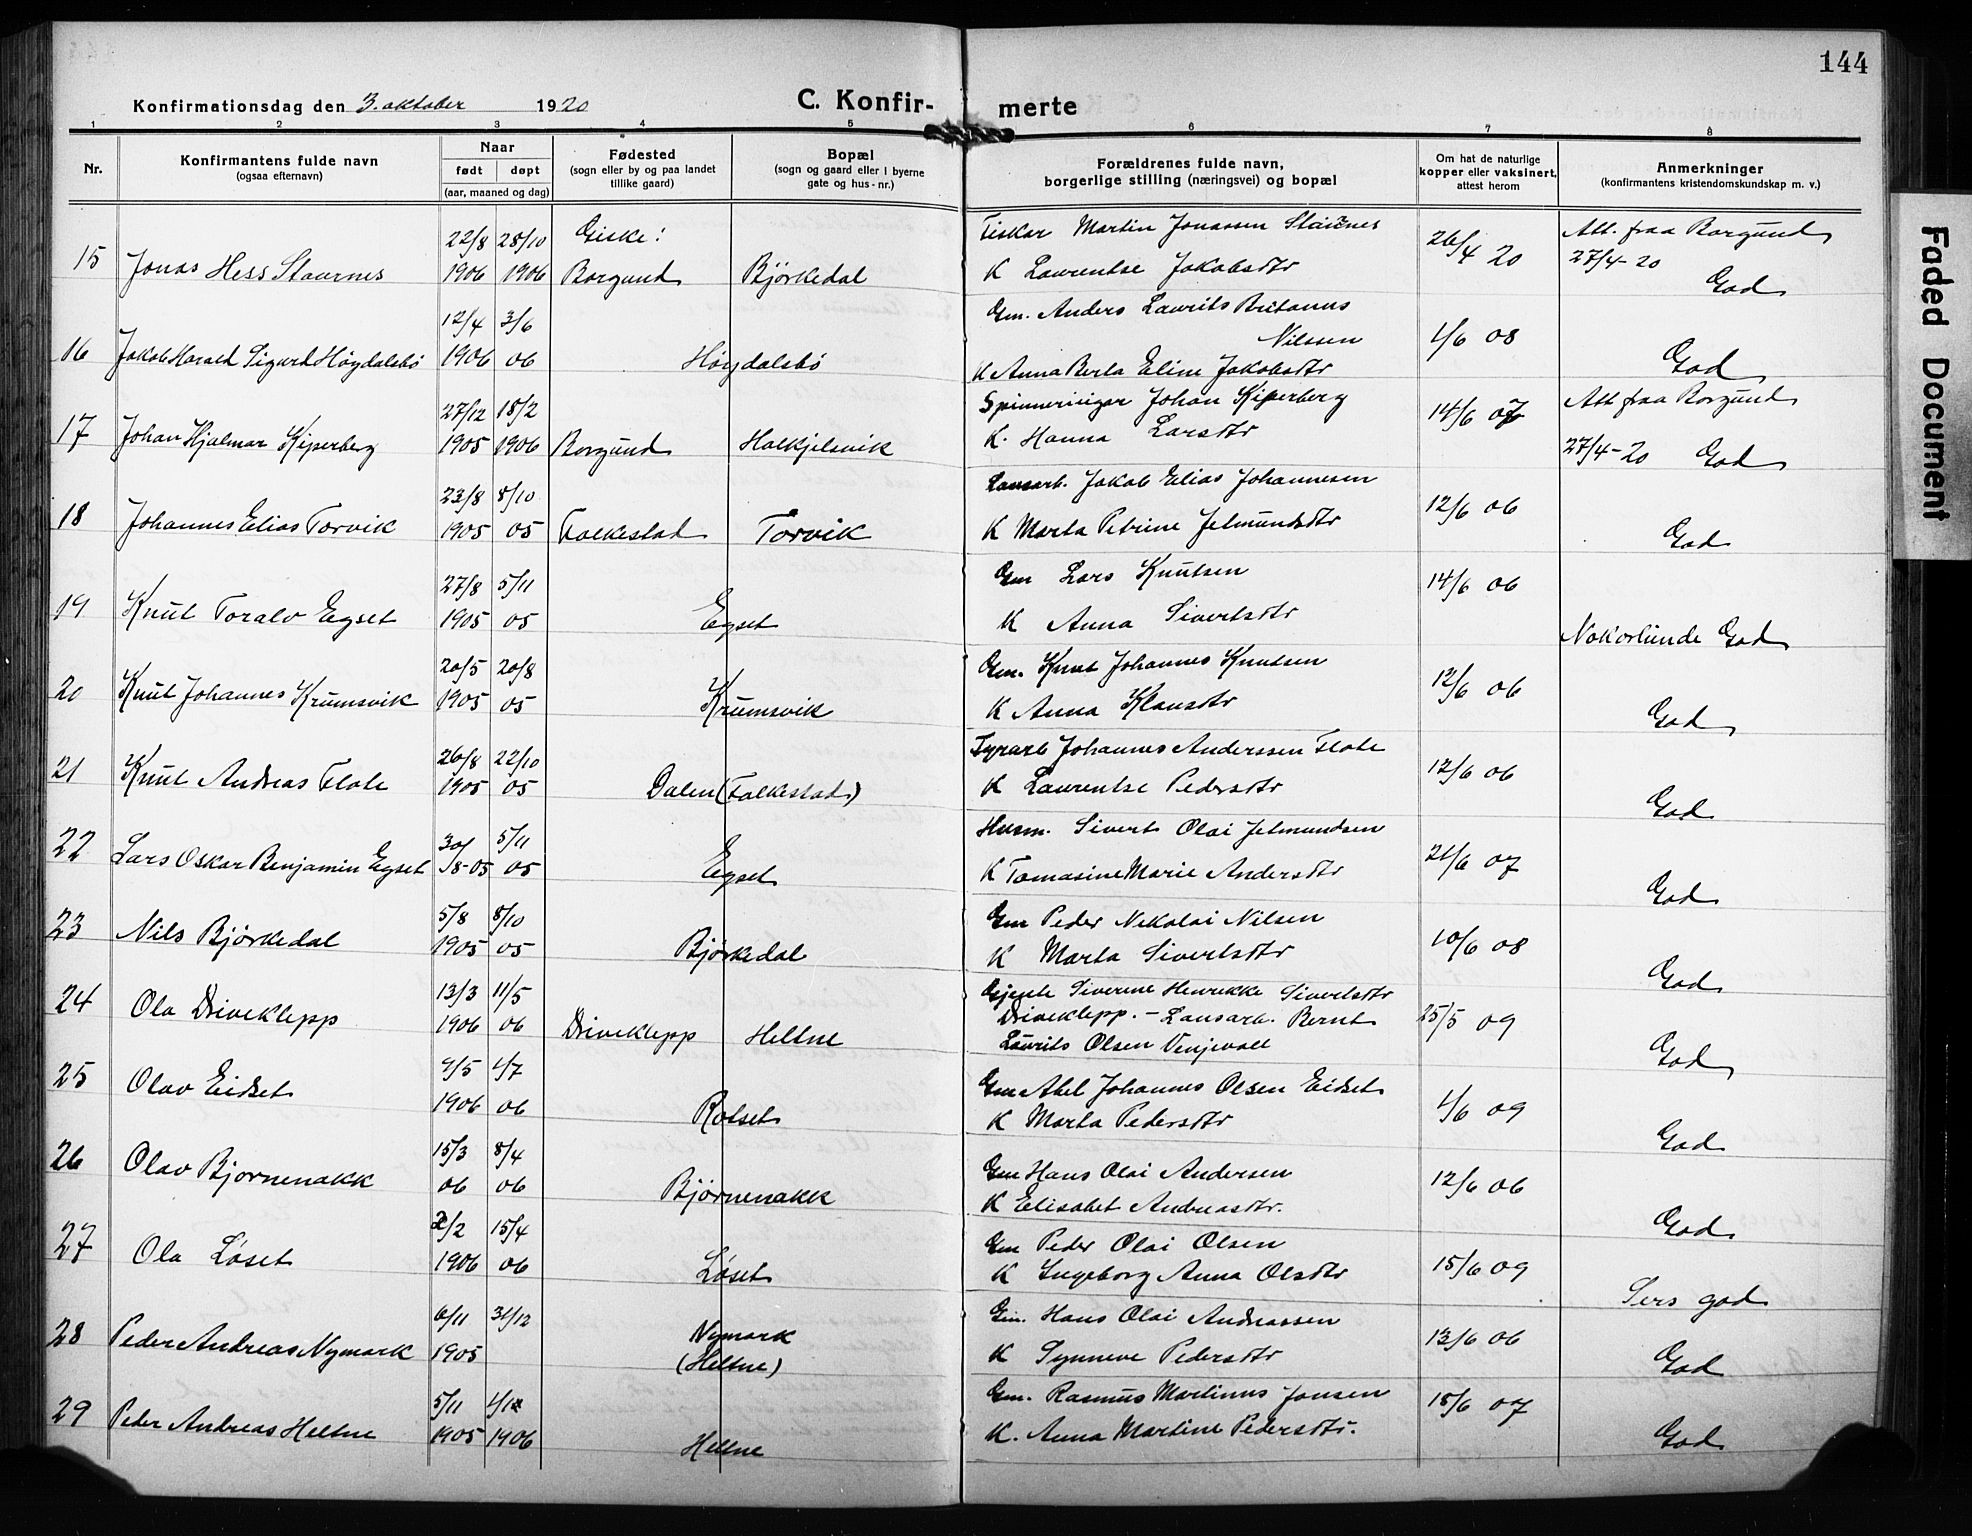 144
Konfirmationsdag den 3. oktober 1920
C. Konfir- merte
1 2 3 4 5 6 7 8
Nr.
Konfirmantens fulde navn
(ogsaa efternavn)
Naar
født døpt
(aar, maaned og dag)
Fødested
(sogn eller by og paa landet
tillike gaard)
Bopæl
(sogn og gaard eller i byerne
gate og hus-nr.)
Forældrenes fulde navn,
borgerlige stilling (næringsvei) og bopæl
Om hat de naturlige
kopper eller vaksinert,
attest herom
Anmerkninger
(konfirmantens kristendomskundskap m. v.)
22/8 28/10 Giske: Fiskar Martin Jonassen Staurnes 26/4 20 Att. fraa Borgund
15 Jonas Hess Staurnes 1906 1906 Borgund Björkedal K Laurentse Jakobsdtr 27/4-20 God
12/4 3/6 Gm. Anders Laurits Britanus
Nilsen 1/6 08
16 Jakob Harald Sigurd Høydalsbø 1906 06 Høydalsbø K Anna Berta Eline Jakobsdtr God
27/12 18/2 Spinnerieigar Johan Kiperberg 14/6 07 Att fraa Borgund
17 Johan Hjalmar Kiperberg 1905 1906 Borgund Halkjelsvik K. Hanna Larsdtr 27/4-20 God
23/8 8/10 Lausarb. Jakob Elias Johannesen 12/6 06
18 Johannes Elias Torvik 1905 05 Folkestad Torvik K Marta Petrine Jetmundsdtr God
27/8 5/11 Gm Lars Knutsen 14/6 06
19 Knut Toralv Egset 1905 05 Egset K Anna Sivertsdtr Nokorlunde God
20/5 20/8 Gm. Knut Johannes Knutsen 12/6 06
20 Knut Johannes Krumsvik 1905 05 Krumsvik K Anna Klausdtr God
26/8 22/10 Fyrarb Johannes Anderssen Flote 12/6 06
21 Knut Andreas Flote 1905 05 Dalen (Folkestad) K Laurentse Pedersdtr God
30/ 5/11 Husm. Sivert Olai Jetmundsen 21/6 07
22 Lars Oskar Benjamin Egset 8-05 05 Egset K Tomasine Marie Andersdtr God
5/8 8/10 Gm Peder Nikolai Nilsen 10/6 08
23 Nils Björkedal 1905 05 Björkedal K Marta Sivertsdtr God
13/3 11/5 Gjente Siverine Henrikke Sivertsdtr
24 Ola Driveklepp 1906 06 Driveklepp Heltne Driveklepp. - Lausarb. Bernt 25/5 09
Laurits Olsen Venjevoll God
9/5 1/7 Gm Abel Johannes Olsen Eidset
25 Olav Eidset 1906 06 Rotset K Marta Pedersdtr 1/6 09 God
15/3 8/4 Gm Hans Olai Andersen 12/6 06
26 Olav Bjørnenakk 06 06 Bjørnenakk K Elisabet Andreasdtr. God
2/2 15/4 Gm Peder Olai Olsen 15/6 09
27 Ola Løset 1906 06 Løset K Ingeborg Anna Olsdtr Sers god
6/11 31/12 Nymark Gm. Hans Olai Andreassen 13/6 06
28 Peder Andreas Nymark 1905 (Heltne) K Synneve Pedersdtr God
5/11 Gm. Rasmus Martinus Jonsen 18/6 07
29 Peder Andreas Heltne 1905 1906 Heltne K. Anna Martine Pedersdtr. God
Faded Document